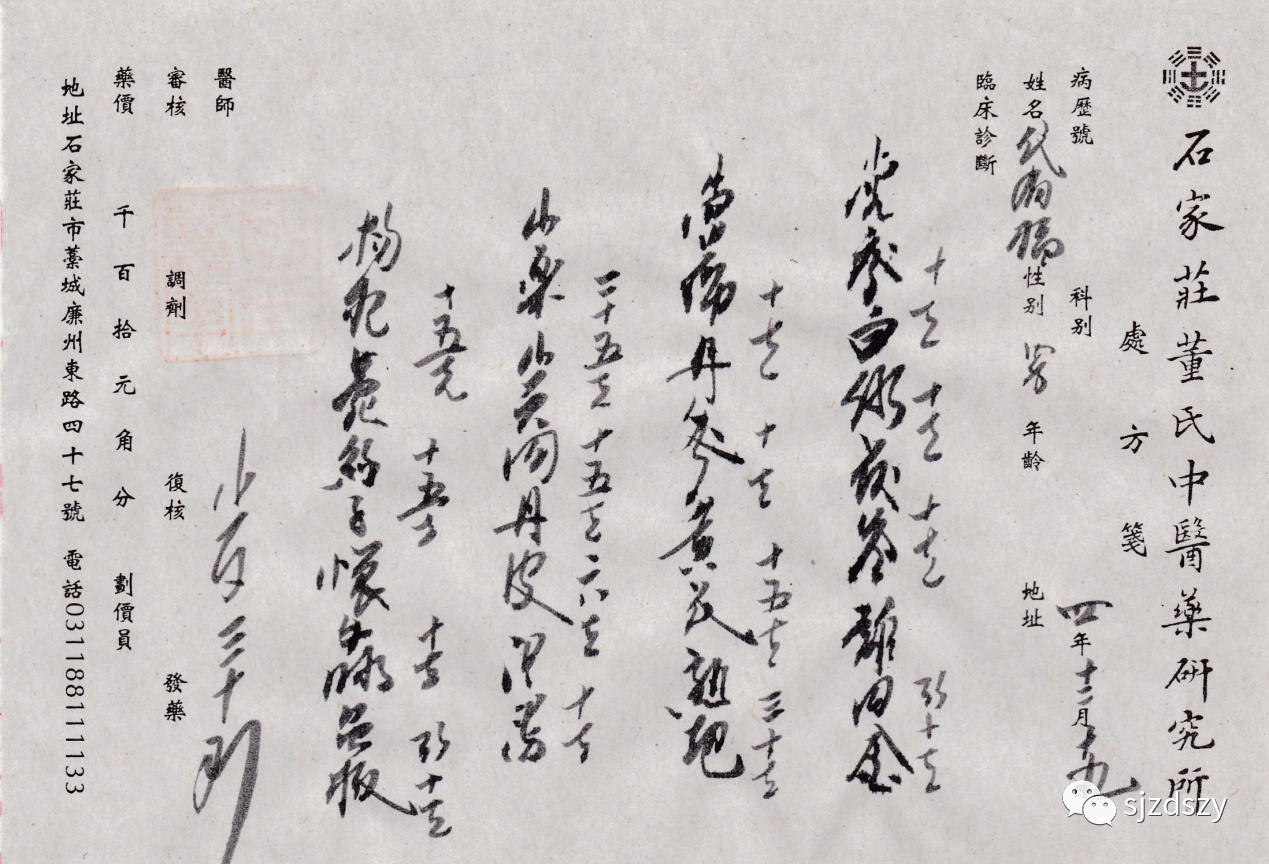 石家莊董氏中醫藥研究所
處方箋
四年十二月十九
病歷號 科别
姓名 性别 男 年齡 地址
臨床診斷
十克 十克 十克 各十克
黨參白術茯苓雞内金
十克 十克 十五克 三十克
當歸丹參黄芪熟地
二十五克 十五克 六克 十克
山藥山萸肉丹皮澤瀉
十五克 十五克 十克 各十克
枸杞菟絲子懷牛膝龜板
水 三十劑
醫師
審核 調劑 復核 發藥
藥價 千百拾元角分 劃價員
地址石家莊市藁城廉州東路四十七號 電話031188111133
sjzdszy